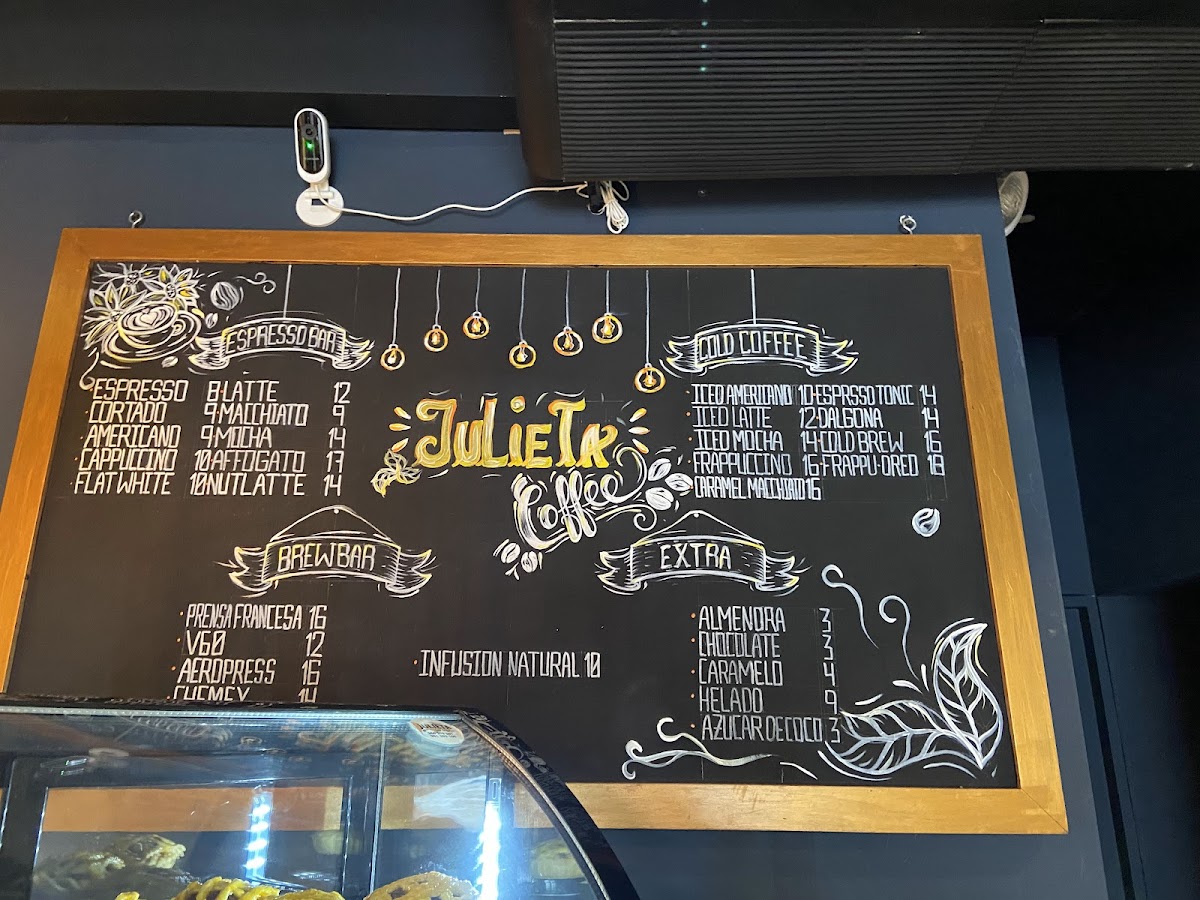 ESPRESSO BAR
ESPRESSO 8 · LATTE 12
· CORTADO 9 · MACCHIATO 9
· AMERICANO 9 · MOCHA 14
· CAPPUCCINO 10 AFFOGATO 17
· FLAT WHITE 10 NUTLATTE 14
JULIETA
Coffee
COLD COFFEE
· ICED AMERICANO 10 · ESPRSSO TONIC 14
· ICED LATTE 12 · DALGONA 14
· ICED MOCHA 14 · COLD BREW 16
· FRAPPUCCINO 16 · FRAPPU·OREO 18
· CARAMEL MACCHIATO 16
BREW BAR
· PRENSA FRANCESA 16
· V60 12
· AEROPRESS 16
CHEMEX 14
· INFUSION NATURAL 10
EXTRA
· ALMENDRA 3
· CHOCOLATE 3
· CARAMELO 4
· HELADO 9
· AZUCAR DE COCO 3